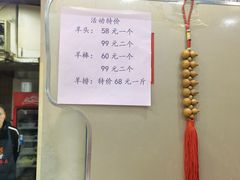 活动特价
羊头： 58 元一个
99 元二个
羊棒： 60 元一个
99 元二个
羊蝎： 特价 68 元一斤